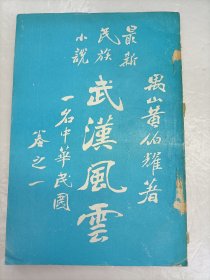 禺山黄伯耀著
最新
民族
小說
武漢風雲
一名中華民國
卷之一